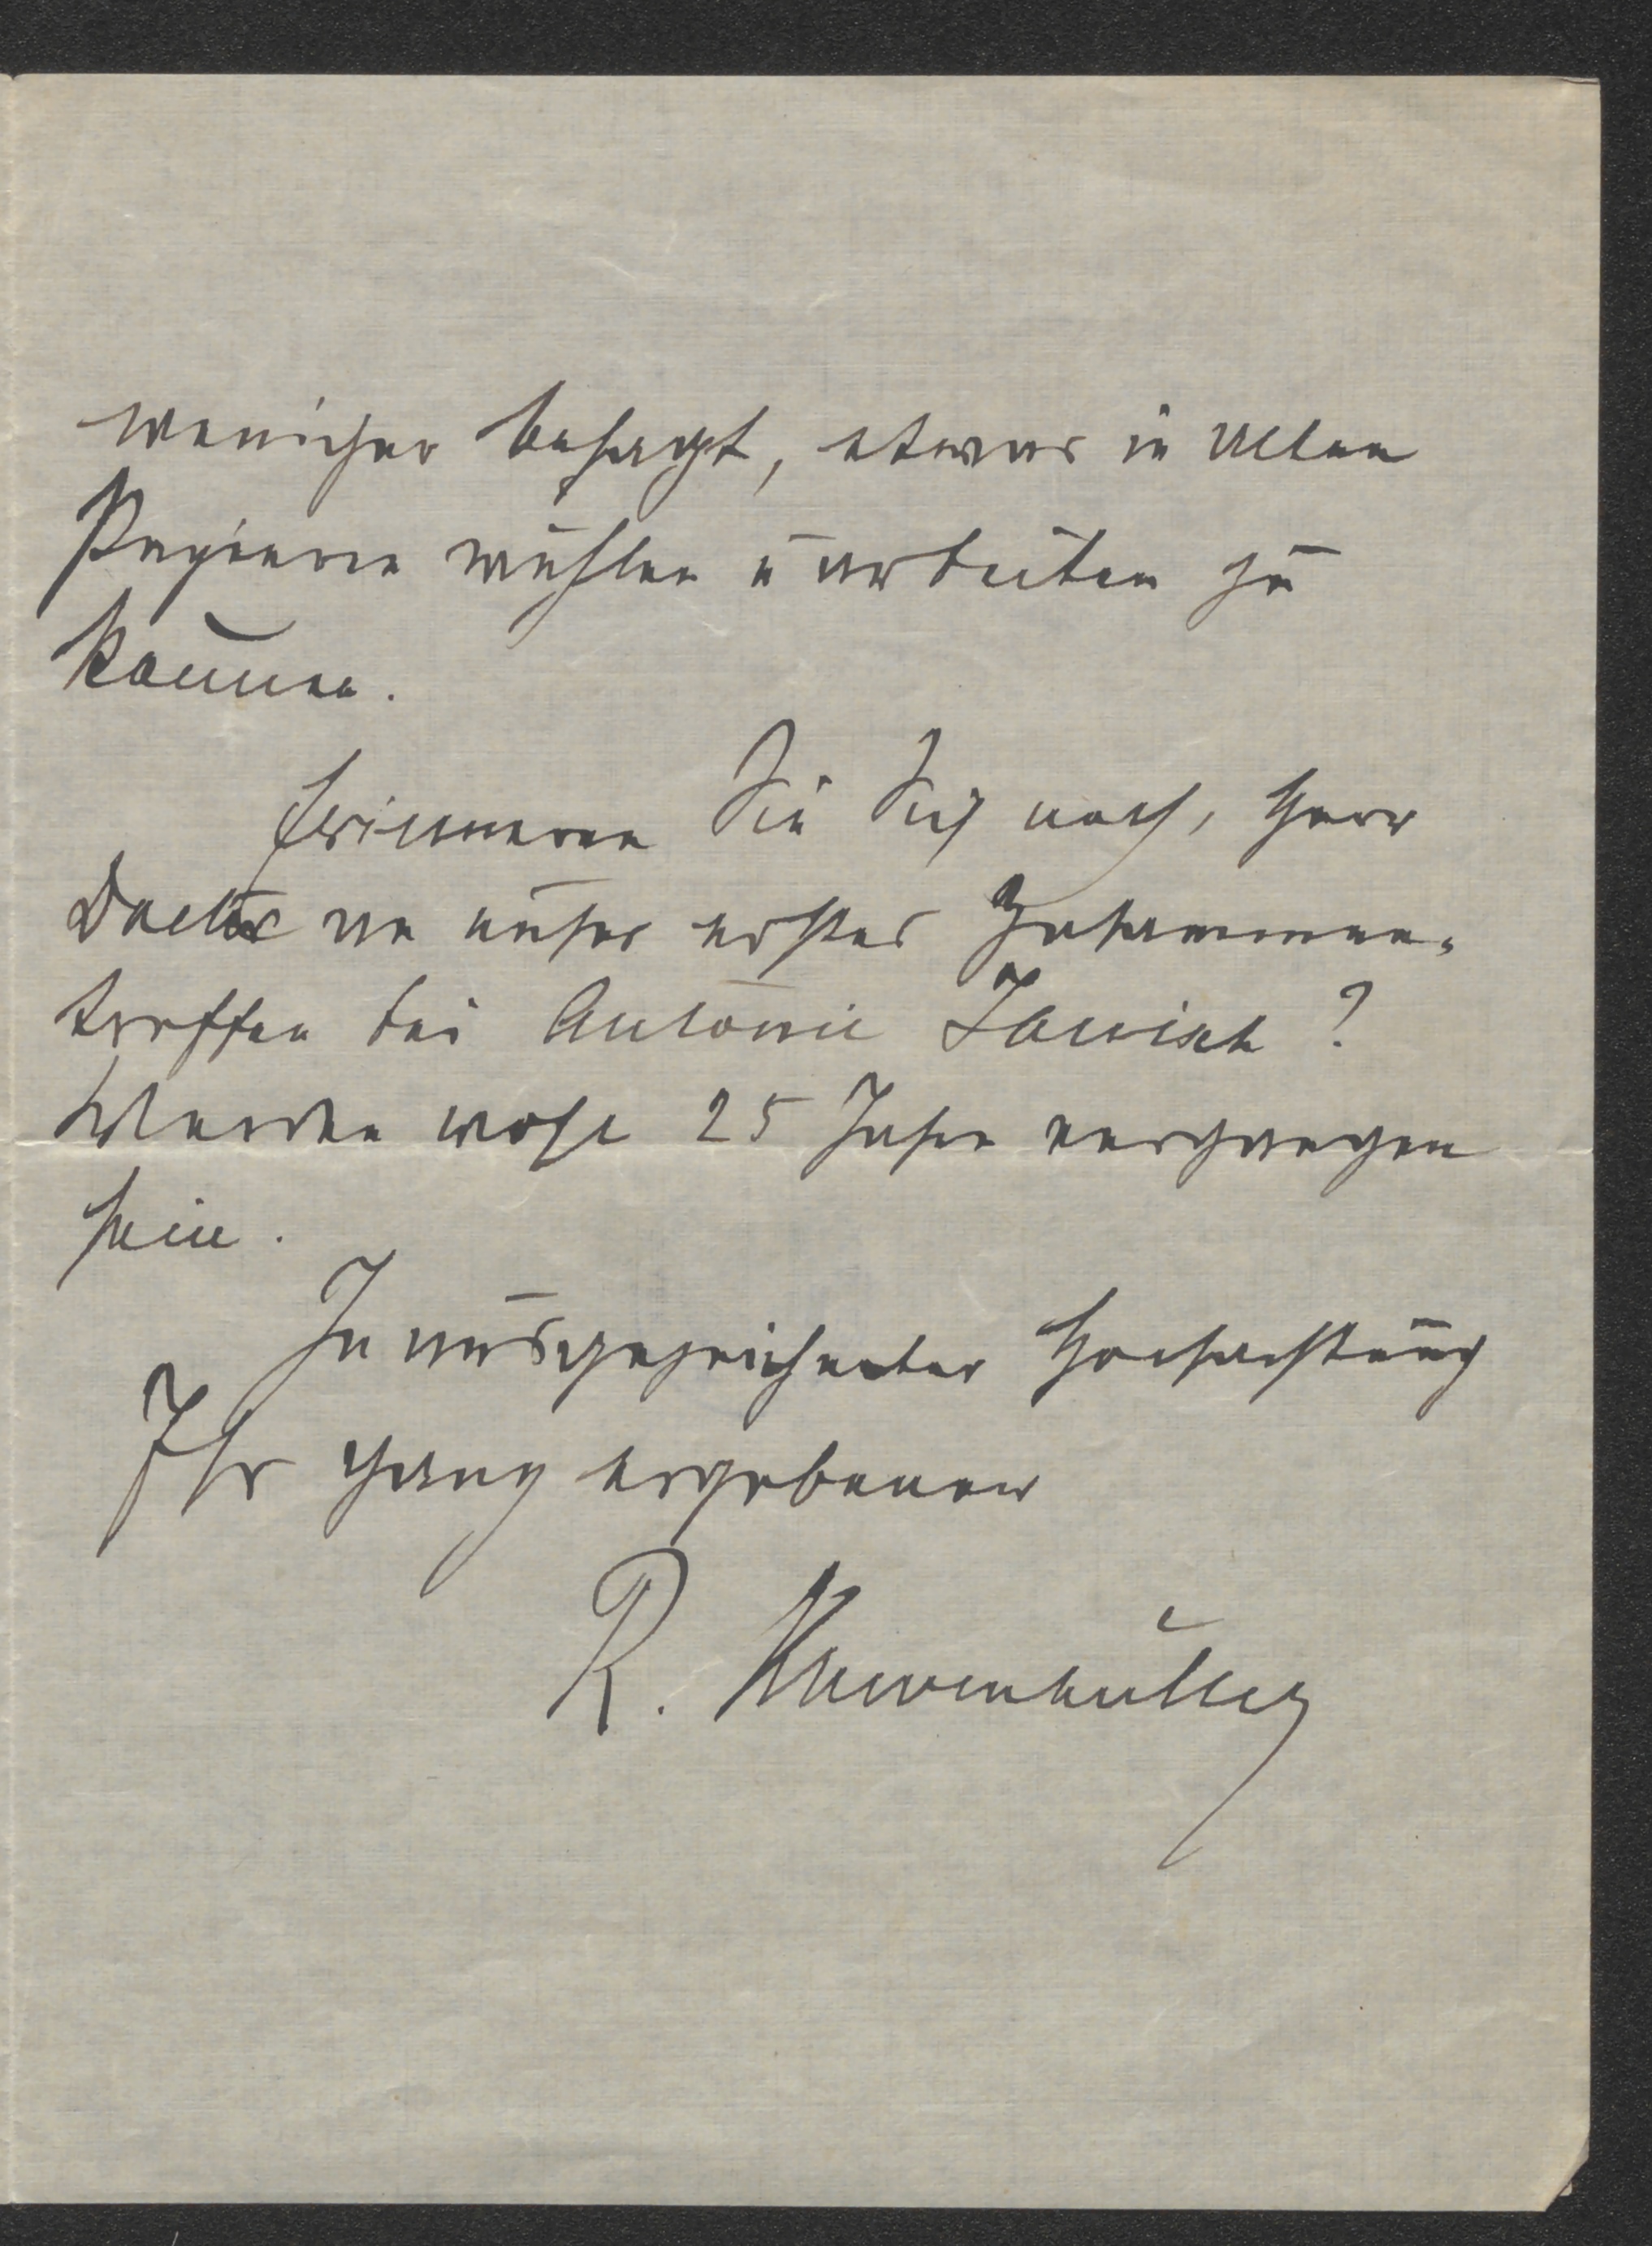 weniger besagt, etwas in alten
Papieren wühlen u arbeiten zu
können.
Erinneren Sie Sich noch, Herr
Doctor an unser erstes Zusammen-
treffen bei Antonie
Werden wohl 25 Jahre vergangen
sein.
In ausgezeichneter Hochachtung
Ihr ganz ergebener
R. Khevenhüller